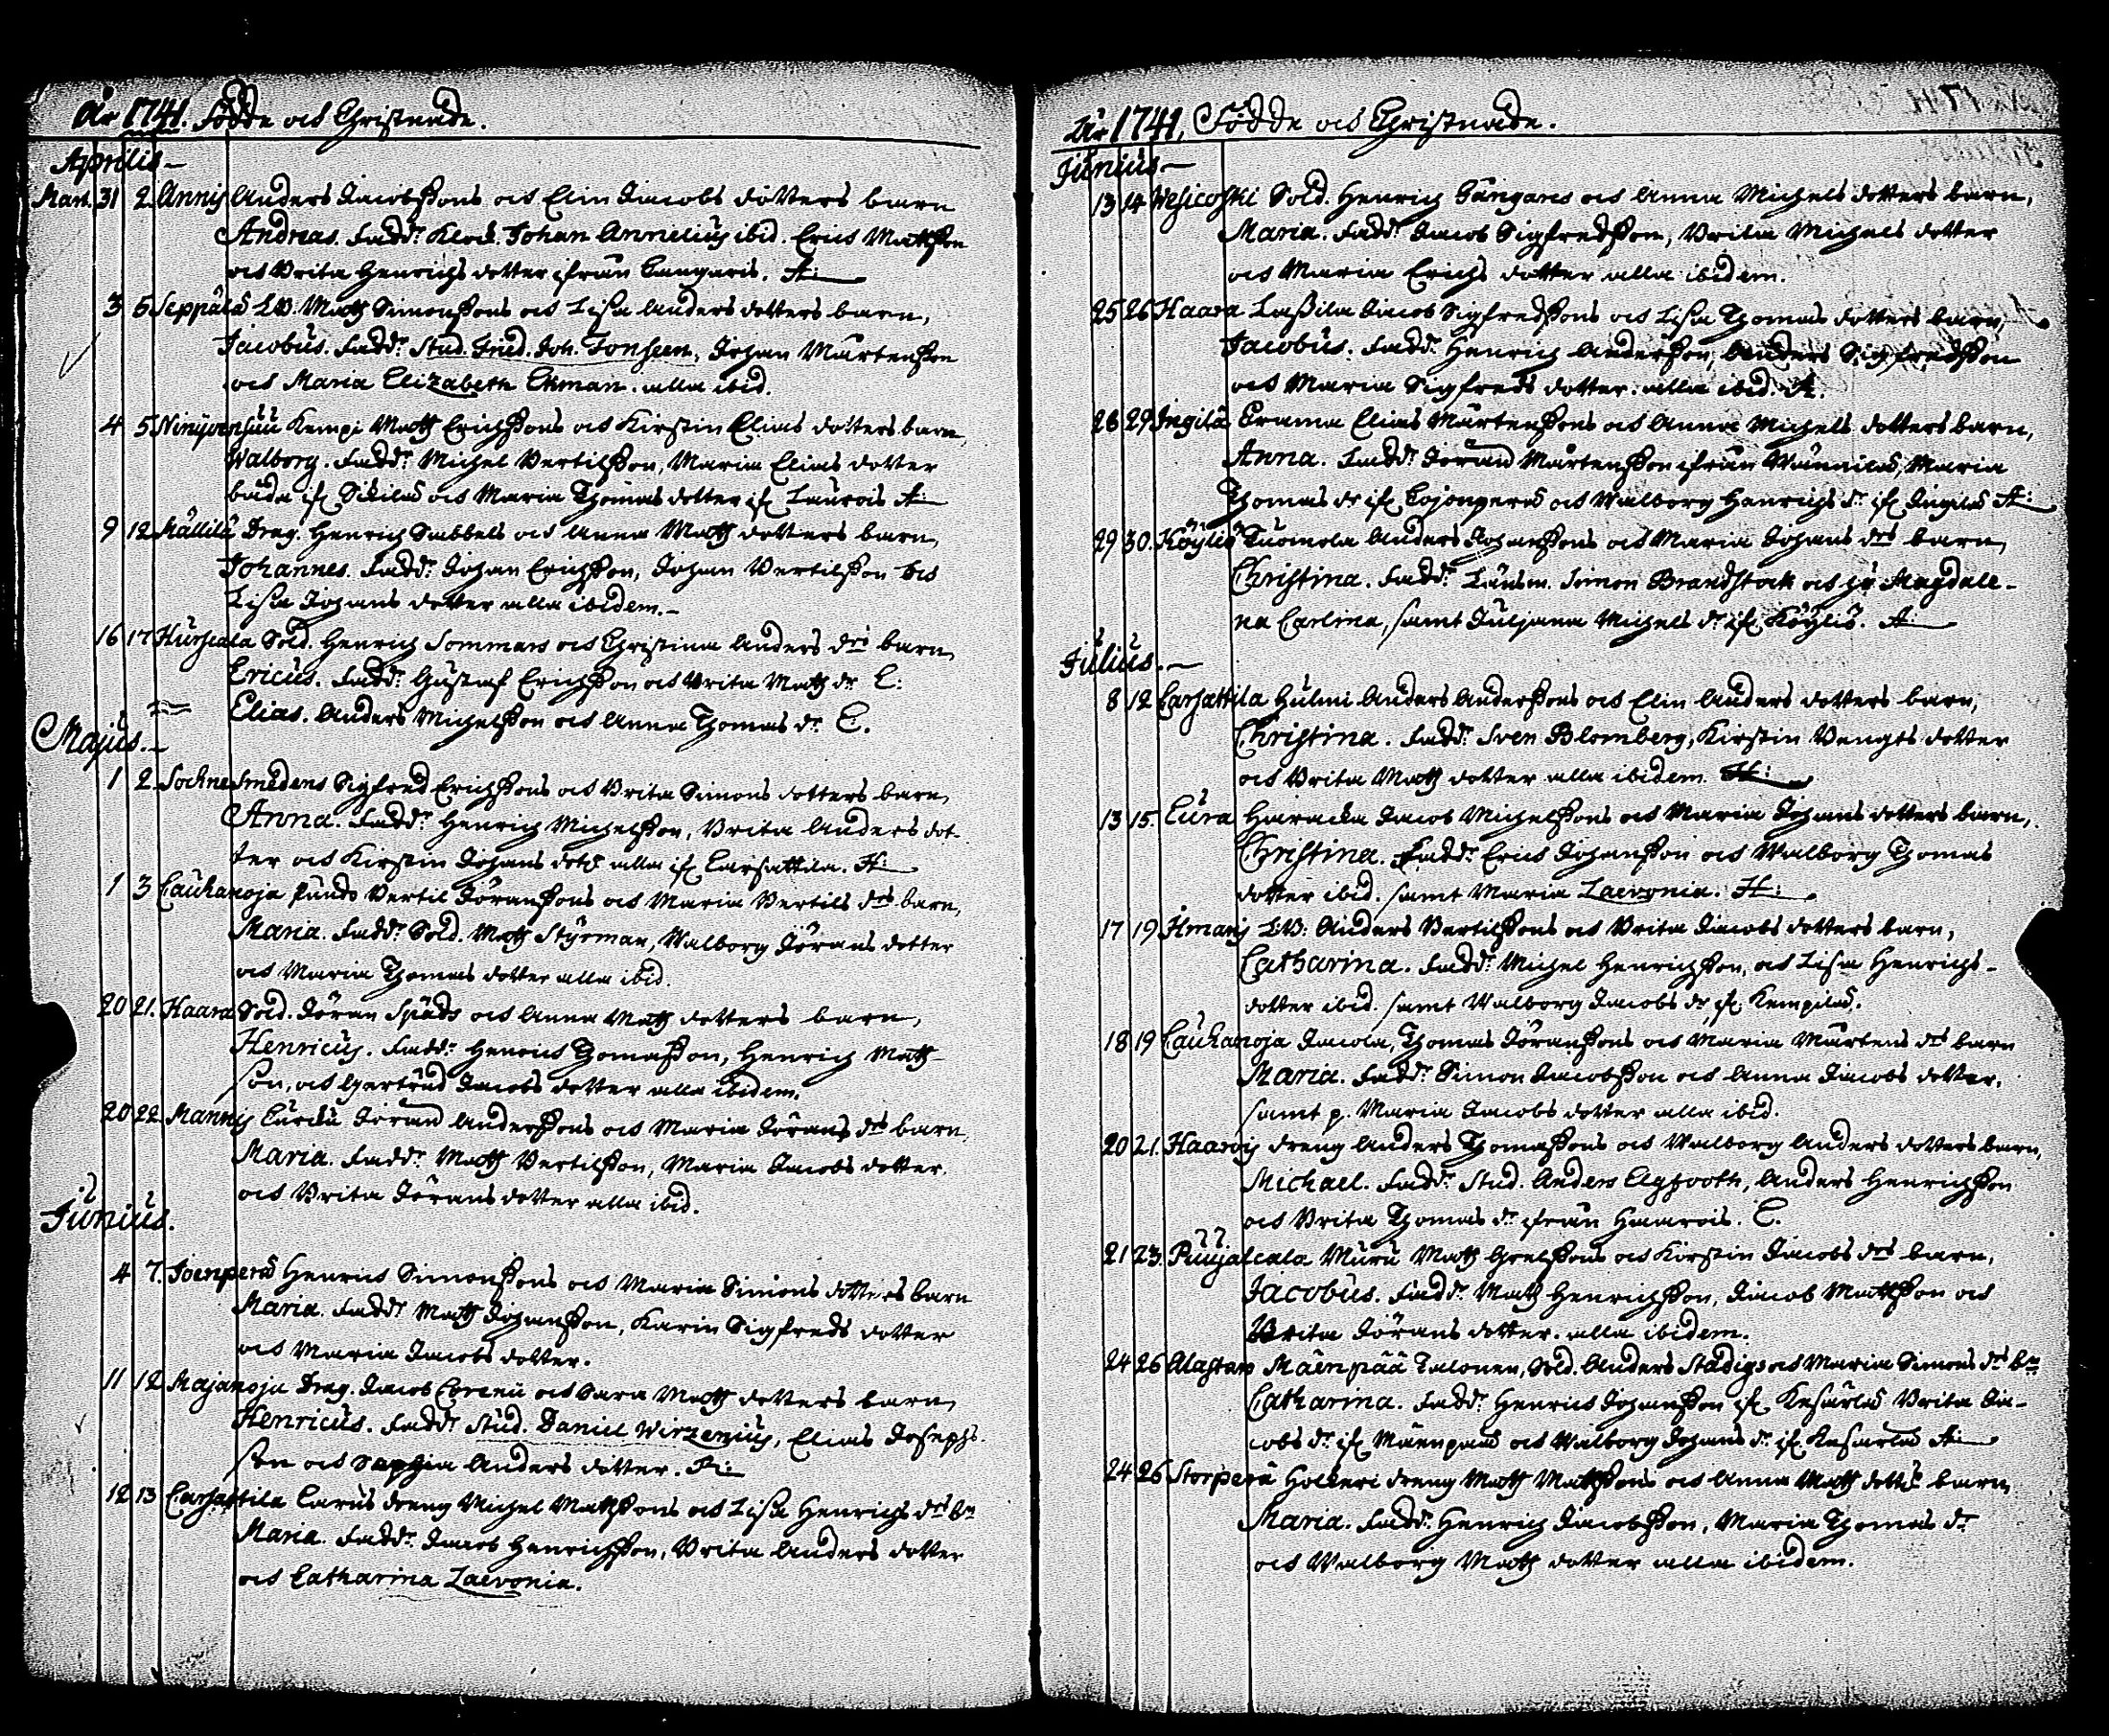 År 1741. Födde och Christnade.
Aprilis
Mart. 31 2 Annis Anders Jacobssons och Elin Jacobs dotters barn
Andreas. Fadd: Klock. Johan Annelius ibid. Erich Mattsson
och Brita Henrichs dotter ifrån Cangaris. A:
3 5 Seppälä LB. Matz Simonssons och Lisa Anders dotters barn,
Jacobus. Fadd: Stud. Frid. Joh. Tonseen, Johan Mårtensson
och Maria Elizabeth Ekman. alla ibid.
4 5 Kempi Matz Erichssons och Kirstin Elias dotters barn
Walborg. Fadd: Michel Bertilsson, Maria Elias dotter
båda if. Sikilä och Maria Thomas dotter if. Laurois A:
9 12 Mällilä Drag. Henrich Sabbels och Anna Matz dotters barn,
Johannes. Fadd: Johan Erichsson, Johan Bertilsson och
Lisa Johans dotter alla ibidem.
16 17 Sold. Henrich Sommars och Christina Anders drs barn,
Ericus. Fadd: Gustaf Erichsson och Brita Matz dr. C:
Elias. Anders Michelsson och Anna Thomas dr. C.
Majus.
1 2 Sochnesmedens Sigfred Erichssons och Brita Simons dotters barn,
Anna. Fadd: Henrich Michelsson, Brita Anders dot-
ter och Kirstin Johans dotr alla if. Carhattila. A:
1 3 Cauhanoja Punds Bertil Jöranssons och Maria Bertils drs barn,
Maria. Fadd: Sold. Matz Styrman, Walborg Jörans dotter
och Maria Thomas dotter alla ibid.
20 21. Haara Sold. Jöran Späds och Anna Matz dotters barn,
Henricus. Fadd: Henrich Thomasson, Henrich Matz-
son, och Gertrud Jacobs dotter alla ibidem.
20 22. Mannis Curcku Jöran Anderssons och Maria Jörans drs barn,
Maria. Fadd: Matz Bertilsson, Maria Jacobs dotter,
och Brita Jörans dotter alla ibid.
Junius.
4 7. Joenperä Henrich Simonssons och Maria Simons dotters barn
Maria. Fadd: Matz Johansson, Karin Sigfreds dotter
och Maria Jacobs dotter.
11 12 Majanoja Drag. Jacob Corenii och Sara Matz dotters barn,
Henricus. Fadd: Stud. Daniel Wirzenius, Elias Josephs-
son och Sophia Anders dotter. A:
12 13 Carhattila Carus dreng Michel Matzsons och Lisa Henrichs drs bn
Maria. Fadd: Jacob Henrichsson, Brita Anders dotter
och Catharina Laevonia.
År 1741, Födde och Christnade.
Junius
13 14 Wesicoski Sold. Henrich Gångares och Anna Michels dotters barn,
Maria. Fadd: Jacob Sigfredsson, Brita Michels dotter
och Maria Erichs dotter alla ibidem.
25 26 Haara Lassila Jacob Sigfredssons och Lisa Thomas dotters barn,
Jacobus. Fadd: Henrich Andersson, Anders Sigfredsson
och Maria Sigfreds dotter. alla ibid. A.
28 29 Ingilä Erama Elias Mårtenssons och Anna Michels dotters barn,
Anna. Fadd: Jöran Mårtensson ifrån Wännilä, Maria
Thomas dr if. Cojonperä och Walborg Henrichs dr. if. Ingilä A:
29 30. Köyliö Tuomola Anders Johanssons och Maria Johans drs barn,
Christina. Fadd: Länsm. Simon Brandstack och hu. Magdale-
na Carlina, samt Juliana Michels dr. if. Köyliö. A:
Julius.
8 12 Carhattila Huhui Anders Anderssons och Elin Anders dotters barn,
Christina. Fadd: Sven Blomberg, Kirstin Bengts dotter
och Brita Matz dotter alla ibidem. A:
13 15. Eura Haracka Jacob Michelssons och Maria Johans dotters barn,
Christina. Fadd: Erich Johansson och Walborg Thomas
dotter ibid. samt Maria Laevonia. A:
17 19 Ilmaris LB: Anders Bertilssons och Brita Jacobs dotters barn,
Catharina. Fadd: Michel Henrichsson, och Lisa Henrichs-
dotter ibid. samt Walborg Jacobs dr if. Kempilä.
18 19 Cauhanoja Jacola, Thomas Jöranssons och Maria Mårtens drs barn
Maria. Fadd: Simon Jacobsson och Anna Jacobs dotter,
samt p. Maria Jacobs dotter alla ibid.
20 21. Haarois dreng Anders Thomassons och Walborg Anders dotters barn,
Michael. Fadd: Stud. Anders Agrooth, Anders Henrichsson
och Brita Thomas dr. ifrån Haarois. C.
21 23. Puujalcala Muru Matz Grelssons och Kirstin Jacobs drs barn,
Jacobus. Fadd: Matz Henrichsson, Jacob Mattsson och
Brita Jörans dotter. alla ibidem.
24 26 Alastaro Mäenpää Talonen, Sold. Anders Stadigs och Maria Simons drs bn
Catharina. Fadd: Henrich Johansson if. Kesärlä Brita Ja-
cobs dr. if. Mäenpää och Walborg Johans dr. if. Kesärlä A:
24 26 Storperä Holkeri dreng Matz Matzsons och Anna Matz dotrs barn,
Maria. Fadd: Henrich Jacobsson, Maria Thomas dr.
och Walborg Matz dotter alla ibidem.